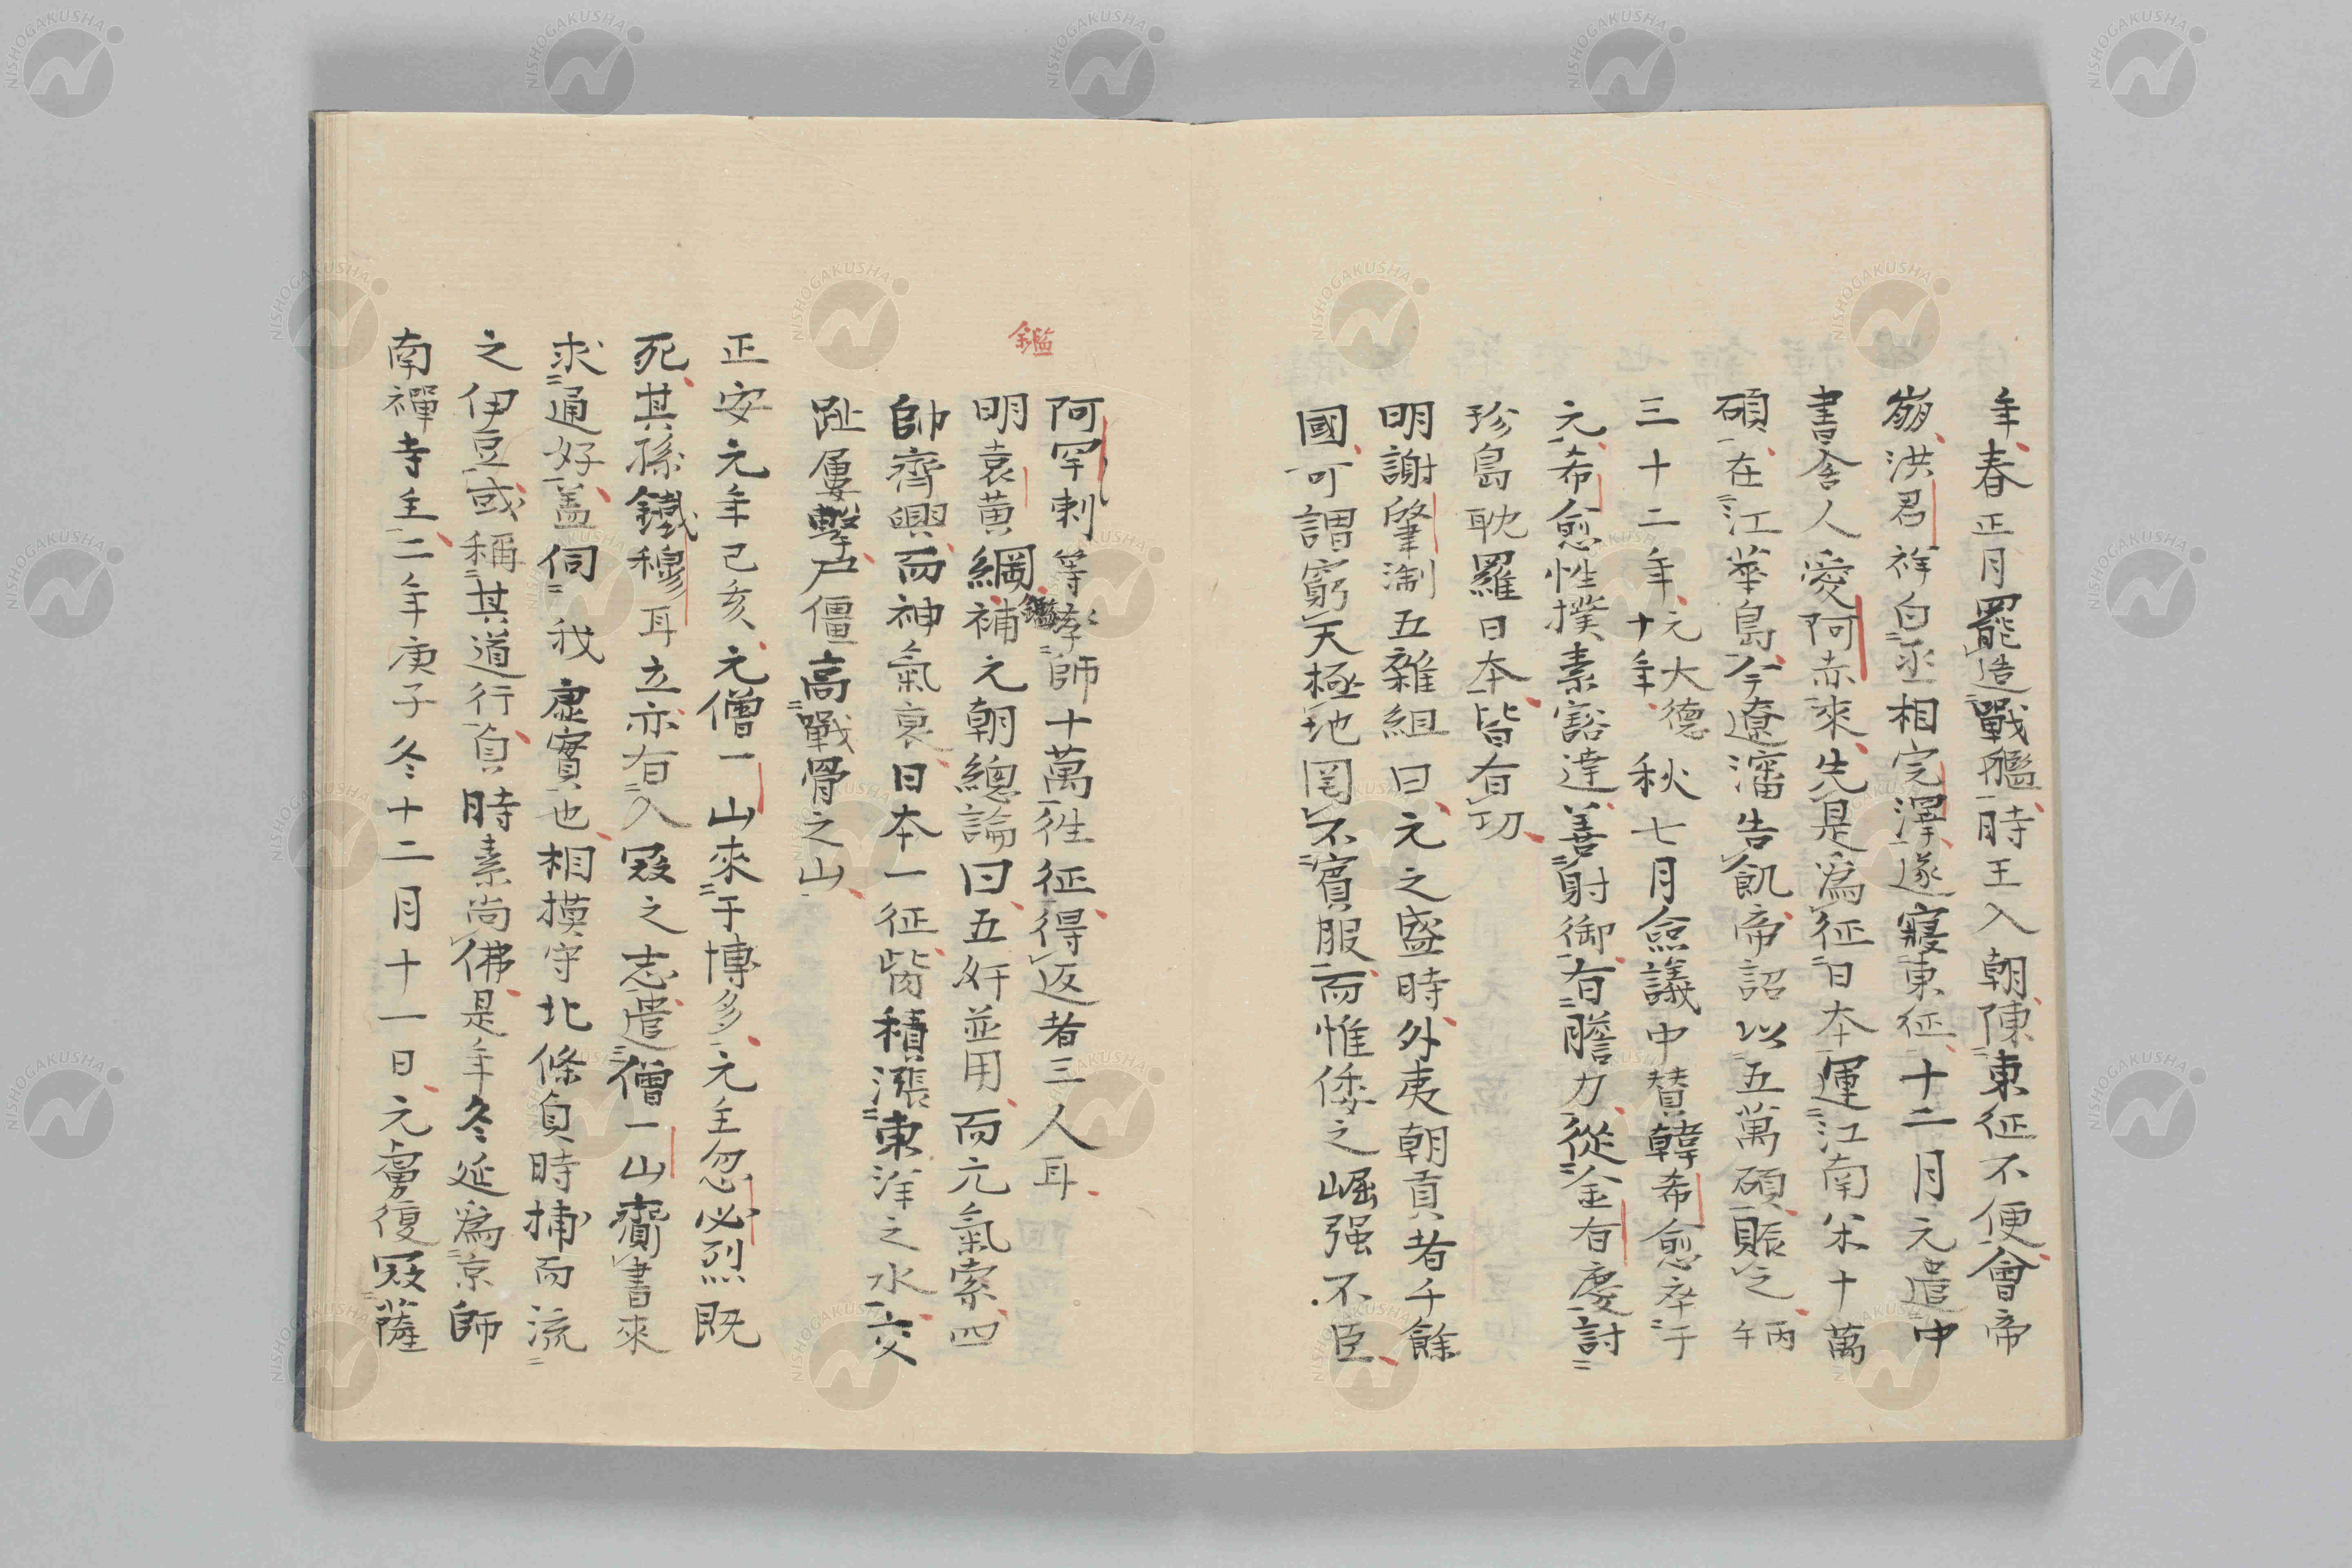 年春正月罷造戰艦時王入朝陳東征不便會帝
崩洪君祥白丞相完澤遂寢東征十二月元遣中
書舍人愛阿赤來先是爲征日本運江南米十萬
碩在江華島今遼瀋告飢帝詔以五萬碩賑之丙午
三十二年元大德十年秋七月僉議中贊韓希愈卒于
元希愈性撲素豁達善射御有膽力從金有慶討
珍島耽羅日本皆有功
明謝肇淛五雜組曰元之盛時外夷朝貢者千餘
國可謂窮天極地罔不賓服而惟倭之崛强不臣
阿罕剌等率師十萬徃征得返者三人耳
鑑
明袁黄綱鑑補元朝總論曰五奸並用而元氣索四
帥齊興而神氣衰日本一征胔積漲東洋之水交
趾屢擊尸僵高戰骨之山
正安元年己亥元僧一山來于博多元主忽必烈既
死其孫鐵穆耳立亦有入寇之志遣僧一山齎書來
求通好盖伺我虛實也相摸守北條貞時捕而流
之伊豆或稱其道行貞時素尚佛是年冬延爲京師
南禪寺主二年庚子冬十二月十一日元虜復寇薩
NISHOGAKUSHA